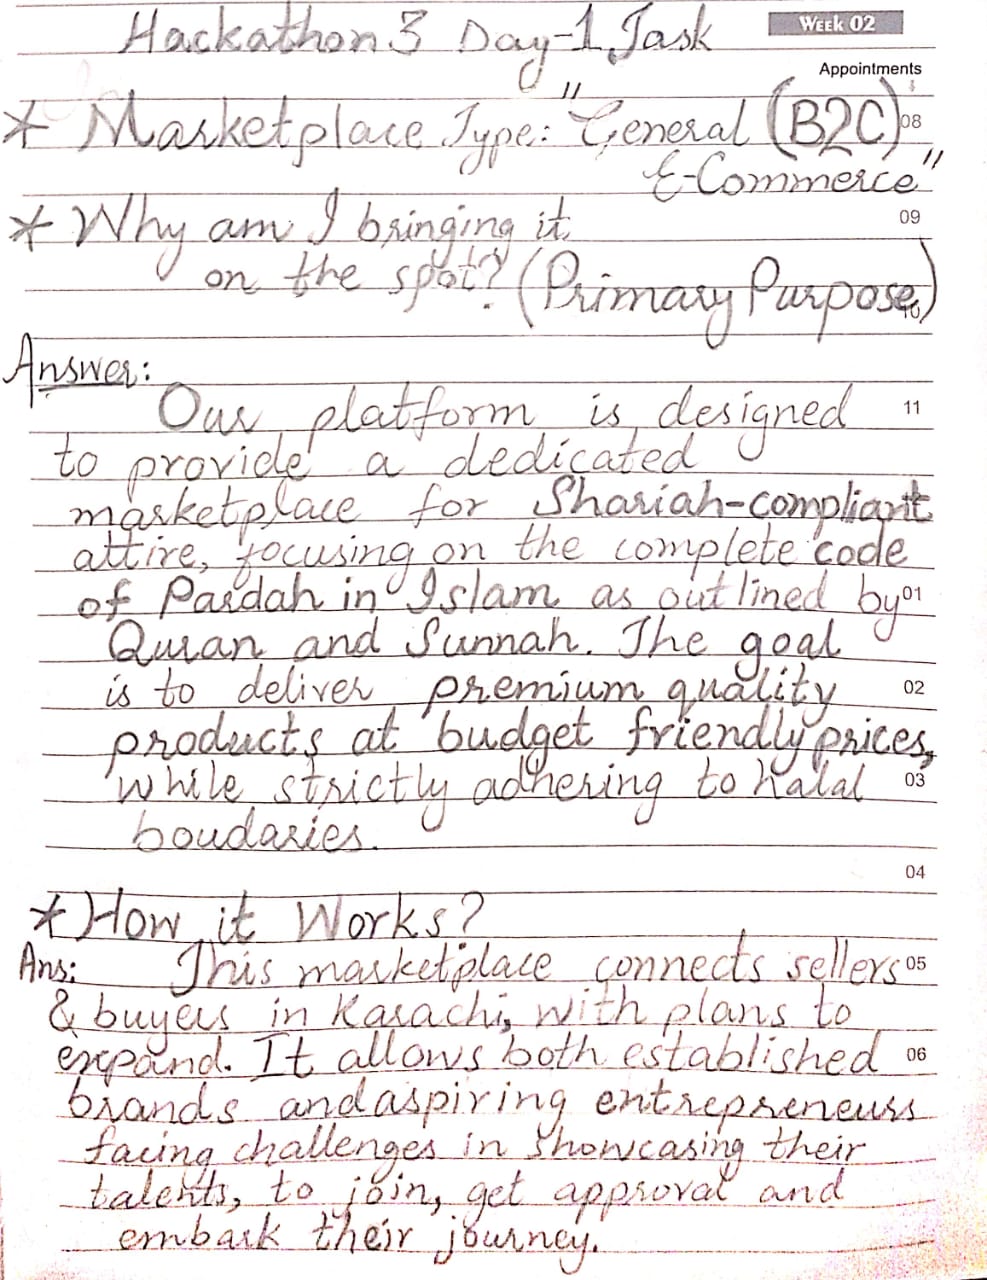 Hackathon 3 Day-1 Task
WEEK 02
Appointments
* Marketplace Type: "General (B2C)
08
E-Commerce"
* Why am I bringing it
09
on the spot? (Primary Purpose)
10
Answer:
Our platform is designed
11
to provide a dedicated
marketplace for Shariah-compliant
attire, focusing on the complete code
of Pardah in Islam as outlined by
01
Quran and Sunnah. The goal
is to deliver premium quality
02
products at budget friendly prices,
while strictly adhering to halal
03
boudaries.
04
* How it Works?
Ans: This marketplace connects sellers
05
& buyers in Karachi, with plans to
expand. It allows both established
06
brands and aspiring entrepreneurs
facing challenges in showcasing their
talents, to join, get approval and
embark their journey.